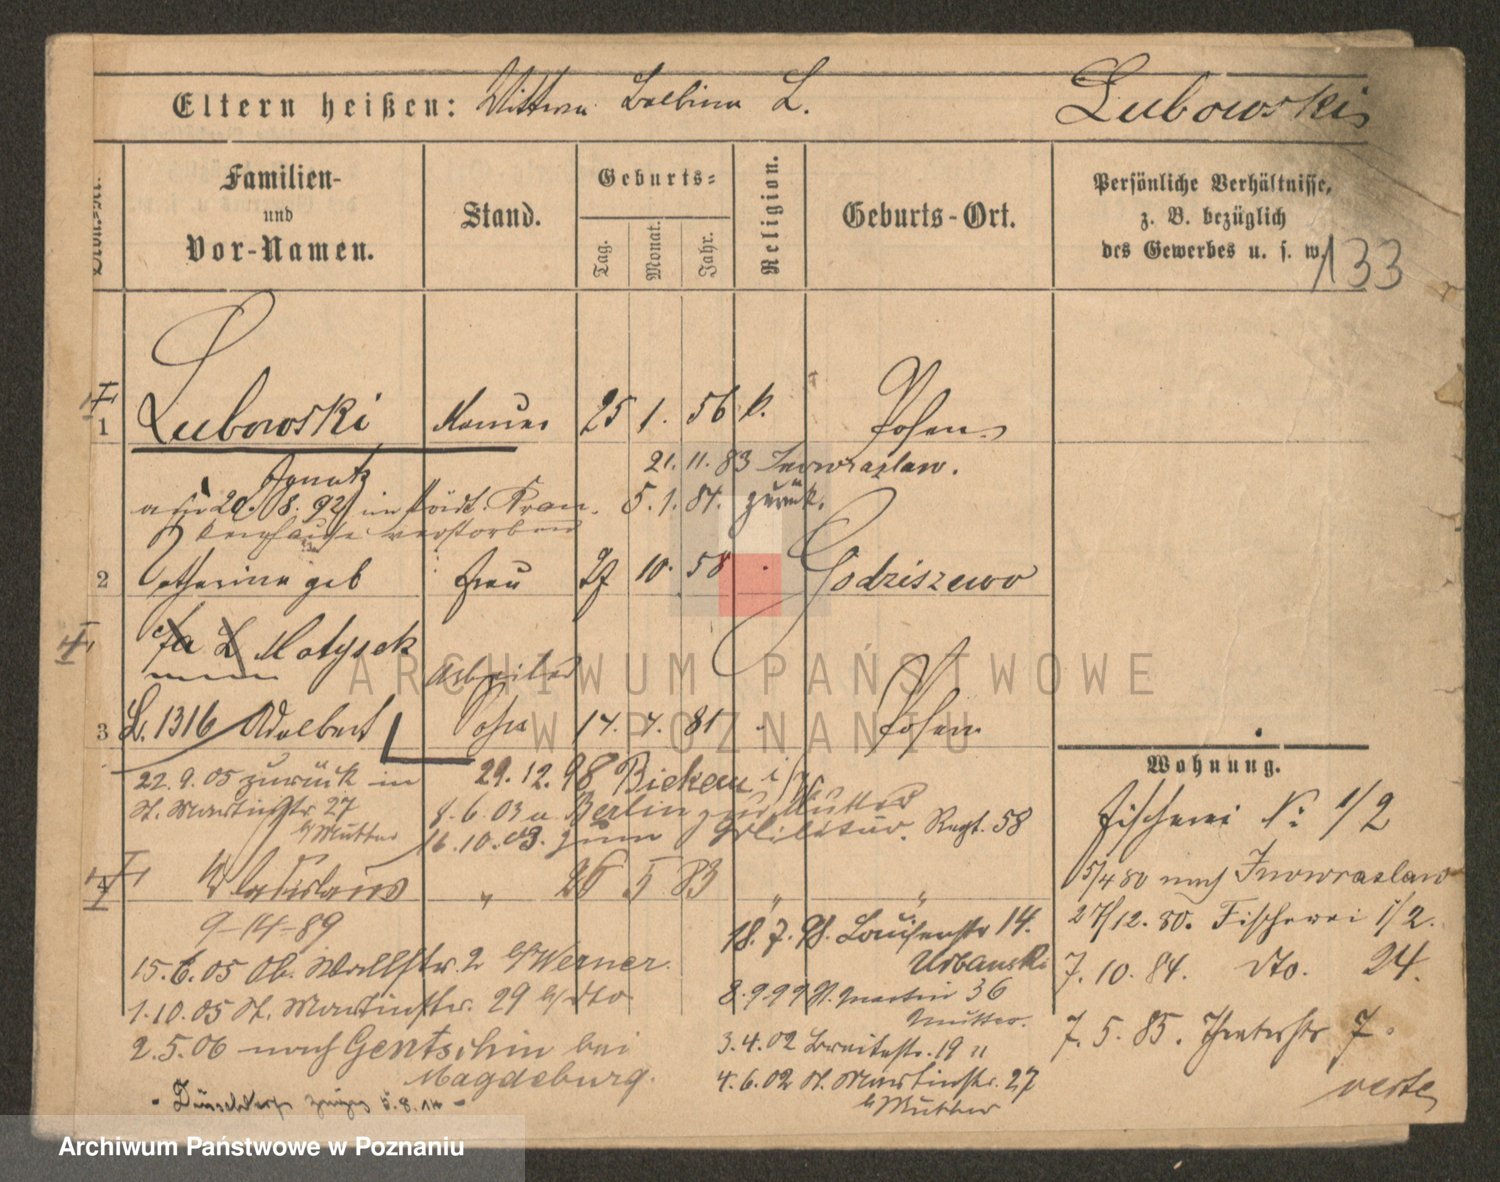 Eltern heißen: Wittwe Balbina L. Lubowski
Familien-
und
Vor-Namen.
Stand.
Geburts-
Tag.
Monat.
Jahr.
Religion.
Geburts-Ort.
Persönliche Verhältnisse,
z. B. bezüglich
des Gewerbes u. s. w.
133
1 Lubowski 25 1. 56 k. Posen
Ignatz 21. 11. 83 Inowrazlaw.
20. 8. 92 im städt. Kran- 5. 1. 84. zurück.
kenhause verstorben
2 Catharina geb Frau 27 10. 58 Godziszewo
Matysek
Arbeiter
3 L. 1316 Adalbert Sohn 17. 4. 81 Posen
22.9.05 zurück in 29. 12. 98
St. Martinstr. 27 8.6.03 n. Berlin zur Mutter
b/Mutter 16.10.03. zum Militär. Regt. 58
4 Wladislaus " 26 5 83 " "
9-14-89
15.6.05 Ob. Wallstr. 2 b/Werner.
1.10.05 St. Martinstr. 29 b/dto
2.5.06 nach Genthin bei
Magdeburg.
18. 7. 98. Louisenstr 14.
Urbanski
8.9.99 St. Martin 36
Mutter.
3.4.02 Breitestr. 19 "
4.6.02 St. Martinstr. 27
b/Mutter
Wohnung.
Fischerei N: 1/2
5/4 80 nach Inowrazlaw
27/12. 80. Fischerei 1/2.
7. 10. 84. dto. 24.
7. 5. 85. Theaterstr 7.
verte
ARCHIWUM PAŃSTWOWE
W POZNANIU
Archiwum Państwowe w Poznaniu